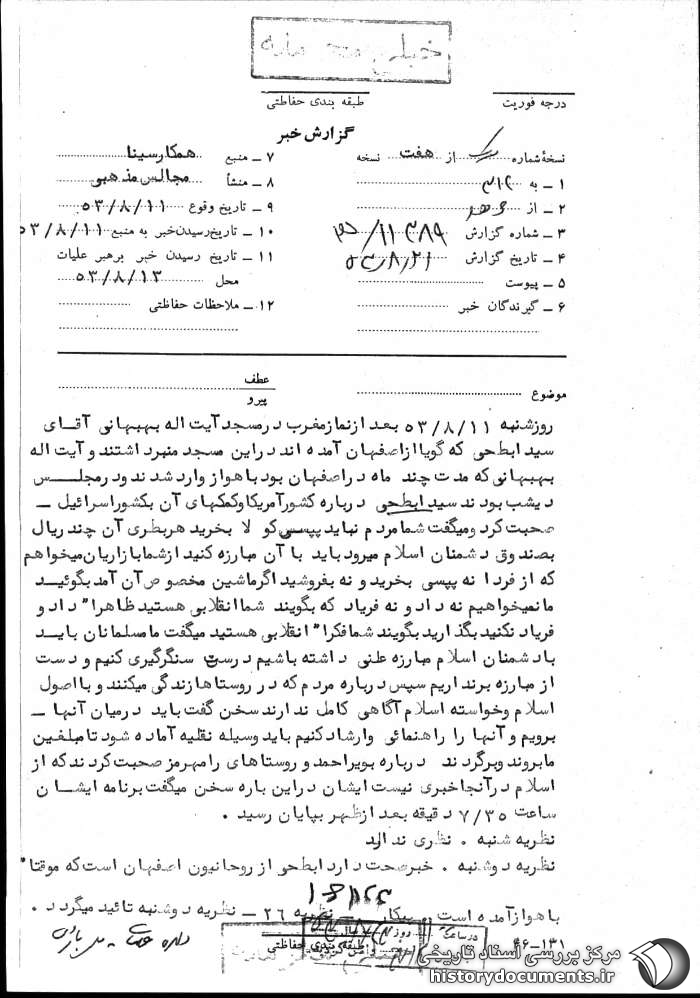 خیلی محرمانه
درجه فوریت
طبقه بندی حفاظتی
گزارش خبر
نسخهٔ شماره یک از هفت نسخه
۱ ـ به ۳۱۲
۲ ـ از
۳ ـ شماره گزارش
۴ ـ تاریخ گزارش ۵۳/۸/۲۱
۵ ـ پیوست
۶ ـ گیرندگان خبر
۷ ـ منبع همکار سینا
۸ ـ منشأ مجالس مذهبی
۹ ـ تاریخ وقوع ۵۳/۸/۱۱
۱۰ ـ تاریخ رسیدن خبر به منبع ۵۳/۸/۱۱
۱۱ ـ تاریخ رسیدن خبر برهبر عملیات
محل ۵۳/۸/۱۳
۱۲ ـ ملاحظات حفاظتی
موضوع
عطف
پیرو
روزشنبه ۵۳/۸/۱۱ بعد ازنمازمغرب درمسجد آیت اله بهبهانی آقای
سید ابطحی که گویا ازاصفهان آمده اند دراین مسجد منبر داشتند و آیت اله
بهبهانی که مدت چند ماه در اصفهان بود باهواز وارد شدند ودرمجلس
دیشب بودند سید ابطحی درباره کشورآمریکا وکمکهای آن بکشوراسرائیل ـ
صحبت کرد ومیگفت شما مردم نباید پپسی کولا بخرید هربطری آن چند ریال
بصندوق دشمنان اسلام میرود باید با آن مبارزه کنید ازشما بازاریان میخواهم
که از فردا نه پپسی بخرید و نه بفروشید اگرماشین مخصوص آن آمد بگوئید
ما نمیخواهیم نه داد و نه فریاد که بگویند شما انقلابی هستید ظاهرا" داد و
فریاد نکنید بگذارید بگویند شما فکرا" انقلابی هستید میگفت ما مسلمانان باید
با دشمنان اسلام مبارزه علنی داشته باشیم درست سنگرگیری کنیم و دست
از مبارزه برنداریم سپس درباره مردم که در روستاها زندگی میکنند و با اصول
اسلام وخواسته اسلام آگاهی کامل ندارند سخن گفت باید درمیان آنها ـ
برویم و آنها را راهنمائی وارشاد کنیم باید وسیله نقلیه آماده شود تا مبلغین
ما بروند وبرگردند درباره بویراحمد و روستاهای رامهرمز صحبت کردند که از
اسلام درآنجا خبری نیست ایشان دراین باره سخن میگفت برنامه ایشان
ساعت ۷/۳۵ دقیقه بعد ازظهر بپایان رسید .
نظریه شنبه . نظری ندارد
نظریه دوشنبه . خبرصحت دارد ابطحی از روحانیون اصفهان است که موقتا"
باهواز آمده است . پیکار ـ نظریه ۲۶ ـ نظریه دوشنبه تائید میگردد .
طبقه بندی حفاظتی
۴۶-۱۳۱
مرکز بررسی اسناد تاریخی
historydocuments.ir